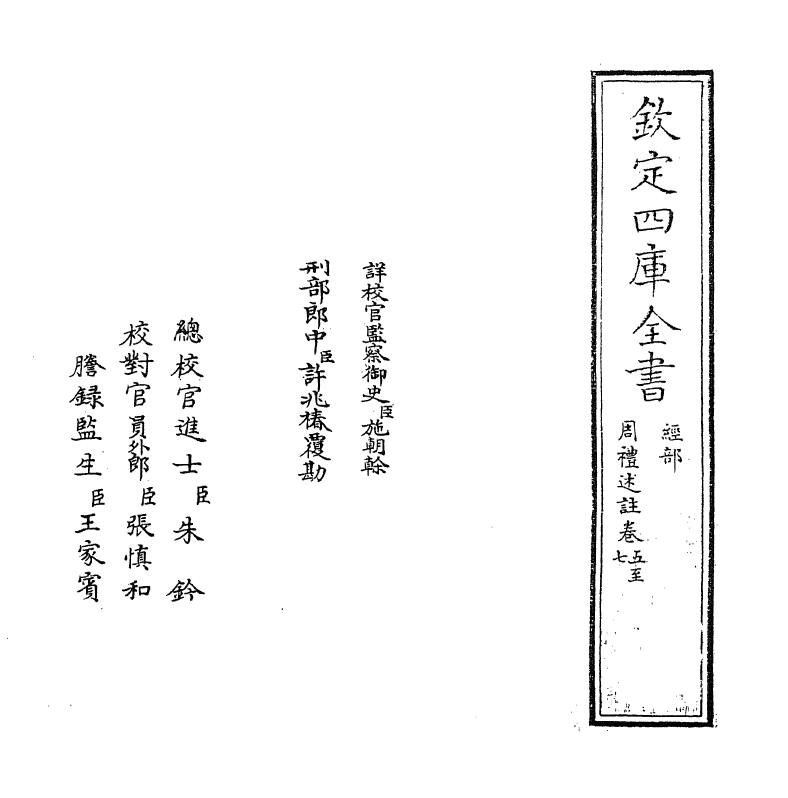 欽定四庫全書
經部
周禮述註卷五至七
詳校官監察御史臣施朝榦
刑部郎中臣許兆椿覆勘
總校官進士臣朱鈐
校對官員外郎臣張慎和
謄錄監生臣王家賓